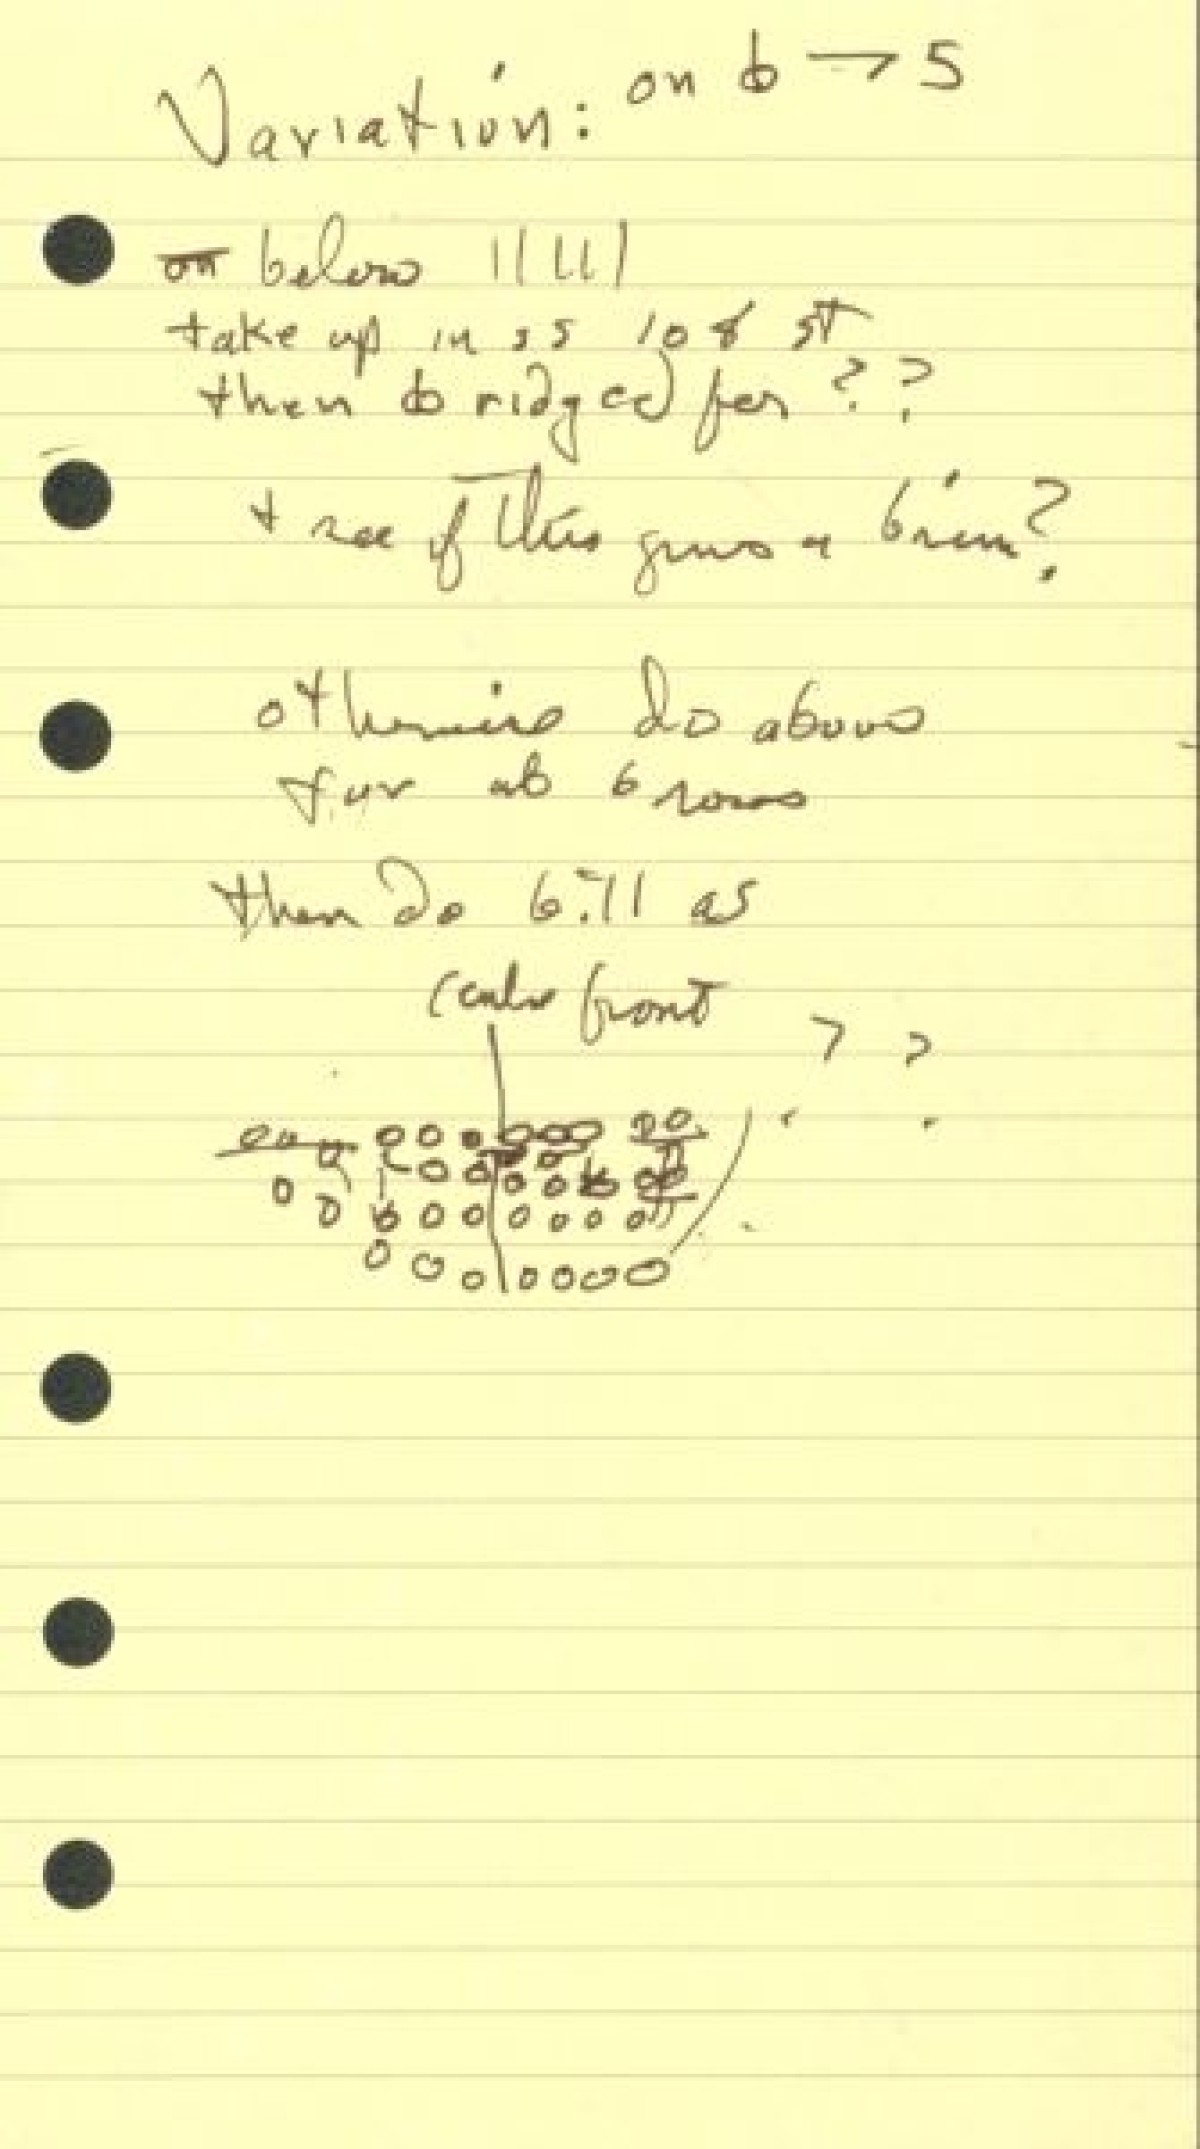 Variation: on 6 → 5
on below
take up in ss 108 st
then bridged for ??
+ see if this gives a brim?
otherwise do above
for ab 6 rows
then do bill as
center front ? ?